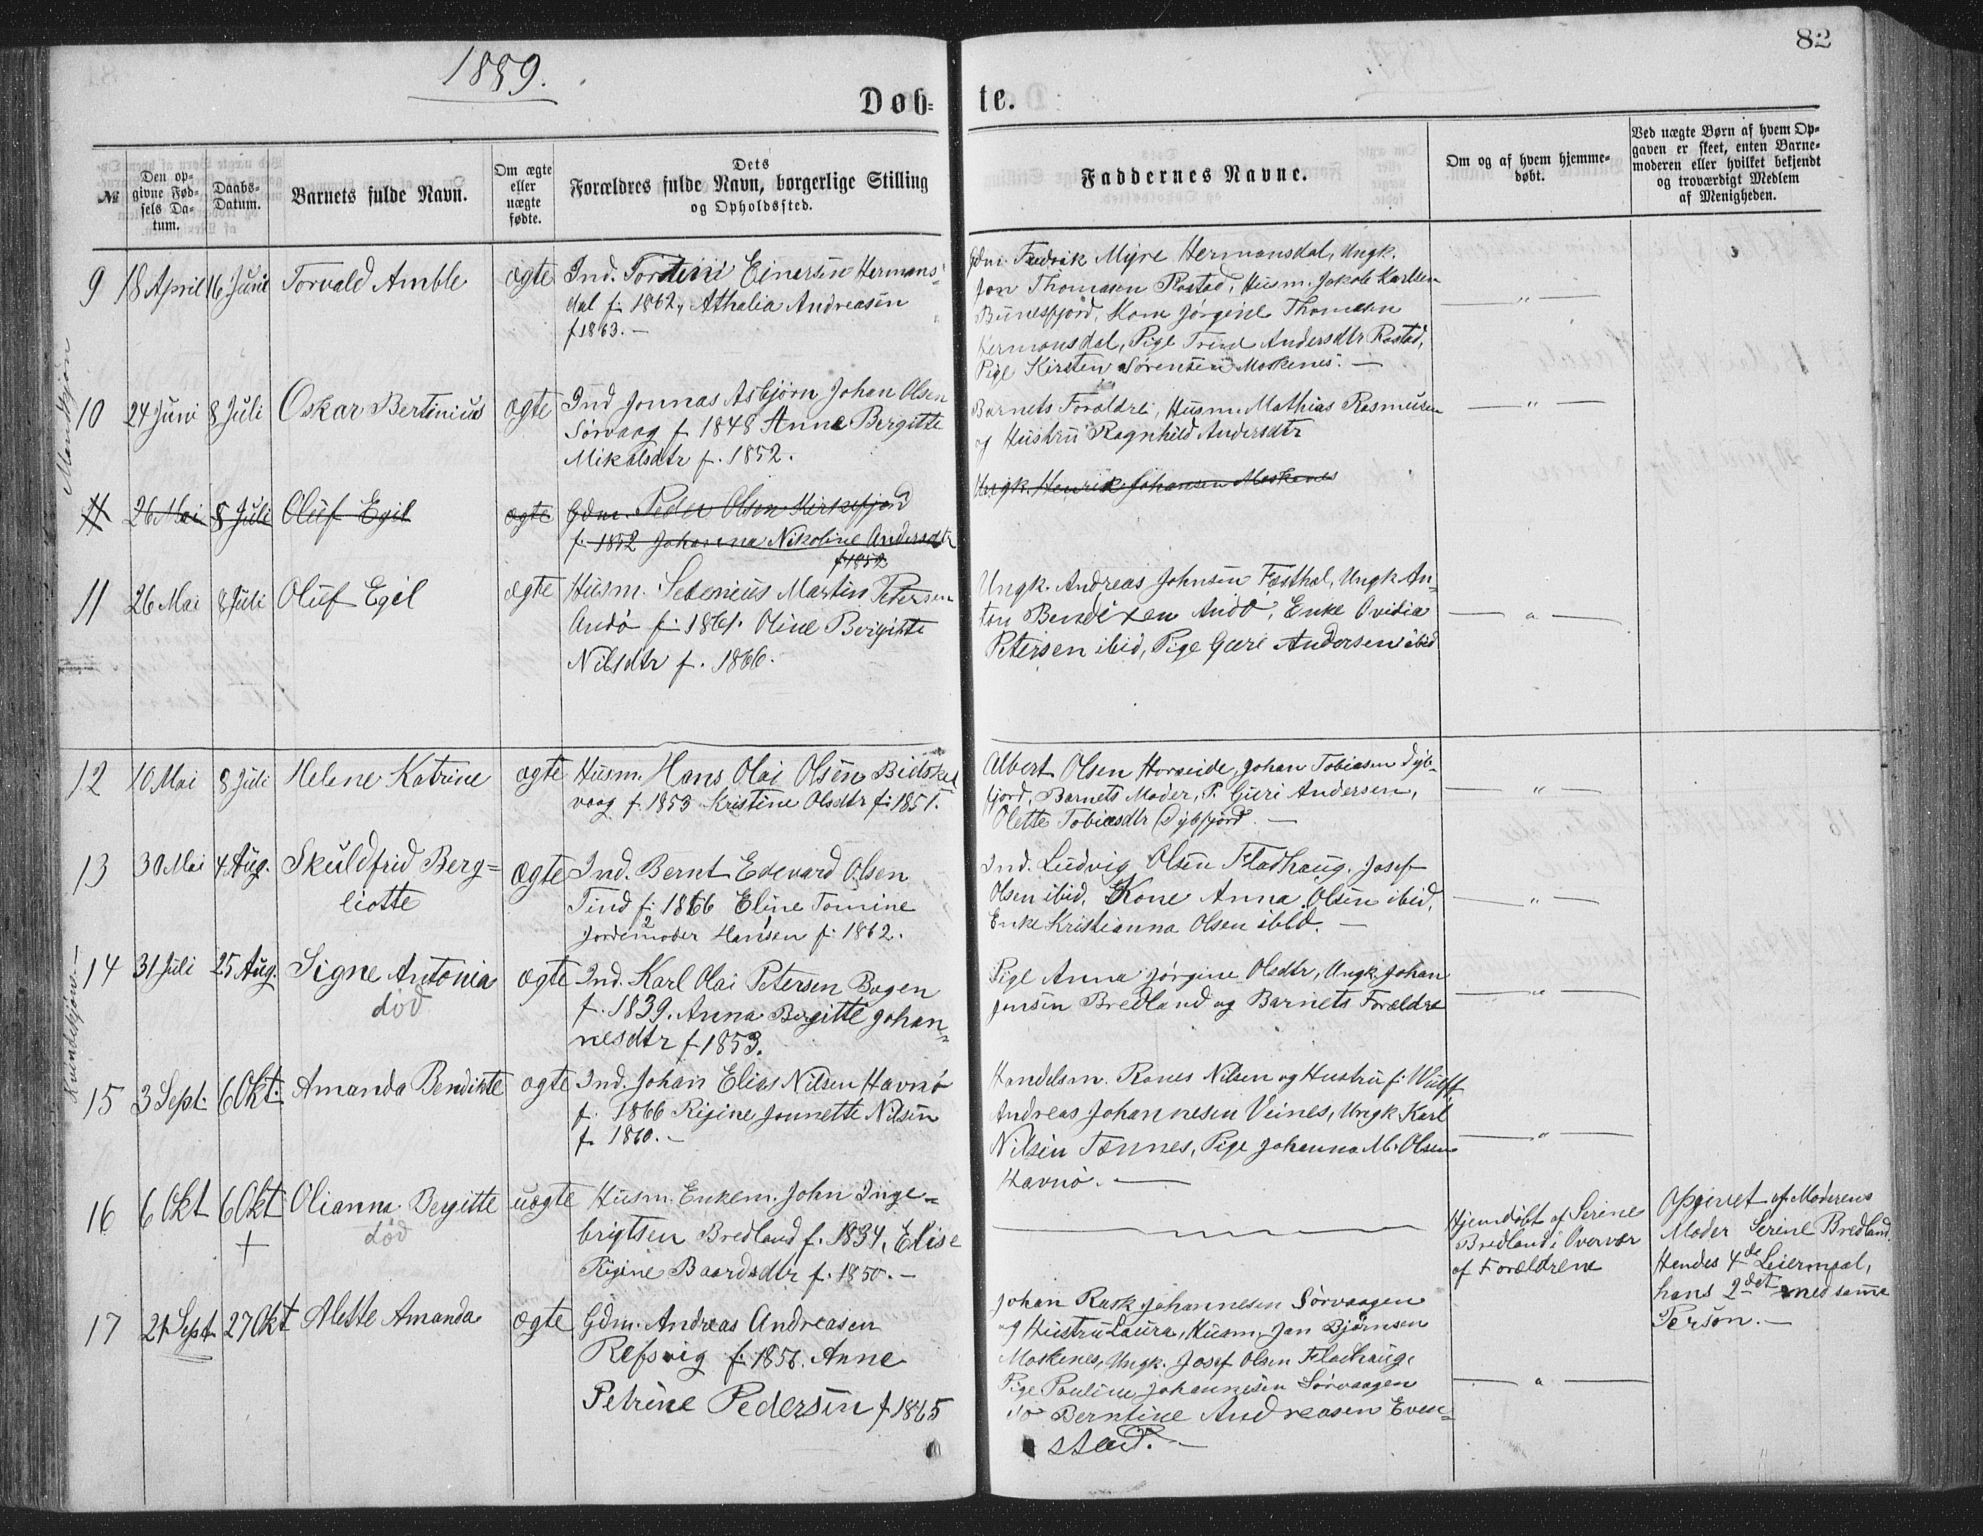 1889.
82
Døb=
te.
№
Den op-
givne Fød-
sels Da-
tum.
Daabs-
Datum.
Barnets fulde Navn.
Om ægte
eller
uægte
fødte.
Dets
Forældres fulde Navn, borgerlige Stilling
og Opholdssted.
Faddernes Navne.
Om og af hvem hjemme-
døbt.
Ved uægte Børn af hvem Op-
gaven er skeet, enten Barne-
moderen eller hvilket bekjendt
og troværdigt Medlem
af Menigheden.
Mandkjøn
9 18 April 16 Juni Torvald Amble ægte Ind. Einersen Hermans-
dal f. 1862, Athalia Andreasen
f 1863. —
Gdm. Fredrik Myre Hermansdal, Ungk.
Jon Thomasen Rostad, Husm. Jakob Karlsen
Bunesfjord, Kone Jørgine Thomasen
Hermansdal, Pige Trine Andersdtr Rostad,
Pige Kirsten Sørensen Moskenes. —
— " —
10 24 Juni 8 Juli Oskar Bertinius ægte Ind Jonnas Asbjørn Johan Olsen
Sørvaag f. 1848 Anne Bergitte
Mikalsdtr f. 1852.
Barnets Forældre, Husm. Mathias Rasmusen
og Hustru Ragnhild Andersdtr
— " —
11 26 Mai 8 Juli Oluf Egil ægte Gdm. Peder Olsen Kirkefjord
f. 1852 Johanna Nikoline Andersdtr
f 1852
Ungk. Henrik Johansen Moskenes
11 26 Mai 8 Juli Oluf Egil ægte Husm. Sedenius Martin Petersen
Andø f. 1861. Oline Bergitte
Nilsdtr f. 1866.
Ungk. Andreas Johnsen Festhel, Ungk An-
ton Bendixen Andø, Enke Ovidia
Petersen ibid, Pige Guri Andersen ibid
— " —
Kvindekjøn. —
12 10 Mai 8 Juli Helene Katrine ægte Husm. Hans Olai Olsen Bidskel
vaag f. 1853 Kristine Olsdtr f. 1851.
Albert Olsen Horseide, Johan Tobiasen Dyb-
fjord, Barnets Moder, P. Guri Andersen,
Olette Tobiasdtr Dybfjord. —
— " —
13 30 Mai 4 Aug. Skuldfrid Berg=
liotte ægte Ind. Bernt Edevard Olsen
Tind f. 1866 Eline Tomine
Jordemoder Hansen f. 1862.
Ind. Ludvig Olsen Fladhaug. Josef
Olsen ibid, Kone Anna Olsen ibid,
Enke Kristianna Olsen ibid. —
— " —
14 31 Juli 25 Aug. Signe Antonia
død
ægte Ind. Karl Olai Petersen Bogen
f. 1839. Anna Bergitte Johan-
nesdtr f 1853.
Pige Anna Jørgine Olsdtr, Ungk. Johan
Jensen Bredland og Barnets Forældre
— " —
15 3 Sept. 6 Okt. Amanda Bendikte ægte Ind. Johan Elias Nilsen Havnø
f. 1866 Rigine Jonnette Nilsen
f. 1860. —
Handelsm. Rones Nilsen og Hustru f. Wulff
Andreas Johannesen Veines, Ungk Karl
Nilsen Tennes, Pige Johanna M. Olsen
Havnø. —
— " —
16 6 Okt 6 Okt
+
Olianna Bergitte
død
uægte Husm. Enkem. John Inge-
brigtsen Bredland f. 1834, Elise
Rigine Baardsdtr f. 1850. —
Hjemdøbt af Serine
Bredland i Overvær
af Forældrene
Opgivet af Moderens
Moder Serine Bredland.
Hendes 4de Leiermaal,
hans 2det med samme
Person. —
17 21 Sept 27 Okt Alette Amanda ægte Gdm. Andreas Andreasen
Refsvig f. 1856. Anne
Petrine Pedersen f 1865
Johan Rask Johannesen Sørvaagen
og Hustru Laura, Husm. Jan Bjørnsen
Moskenes, Ungk. Josef Olsen Fladhaug,
Pige Pauline Johannesen Sørvaagen
do Berntine Andreasen Even-
stad. —
— " —